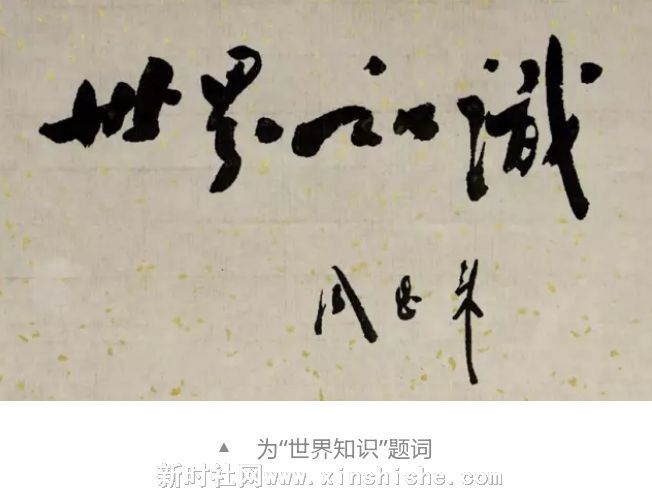 世界知識
周恩来
▲ 为“世界知识”题词
新时社网www.xinshishe.com